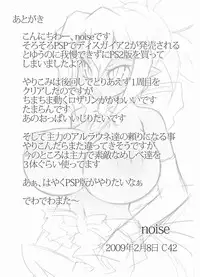 あとがき
こんにちわー、noiseです
そろそろPSPでディスガイア2が発売される
とゆうのに我慢できずにPS2版を買って
しまいましたよ?!
やりこみは後回しでとりあえず1周目を
クリアしたのですが
ちまちま動くロザリンがかわいいです
たまらんです
あのおっぱいいじりたいです
そして主力のアルラウネ達の頼りになる事
やりこんだらまた違ってきそうですが
今のところは主力で素敵なめしべ達を
3体ぐらい使ってます
あぁ、はやくPSP版がやりたいなぁ
でわでわまた～
noise
2009年2月8日 C42